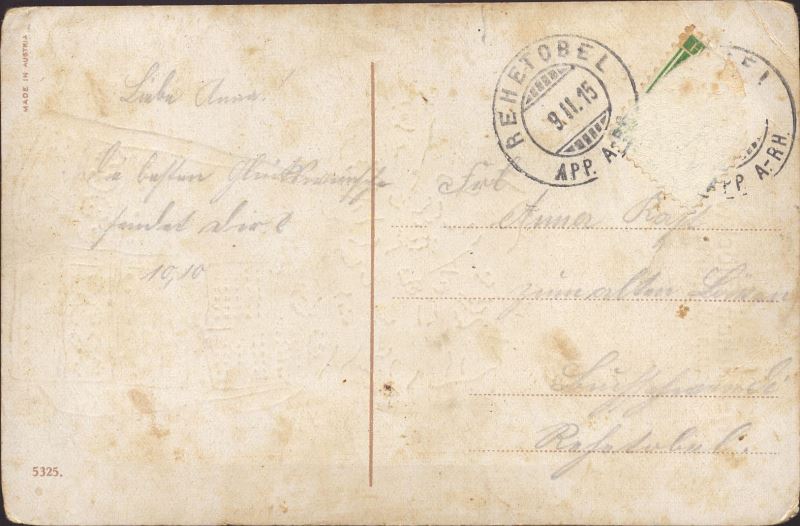 MADE IN AUSTRIA
Liebe Anna!
Die besten Glückwünsche
sendet Dir
REHETOBEL
9.II.15
APP. A-RH.
APP. A-RH.
Frl
Anna
zum alten
Rehetobel.
5325.